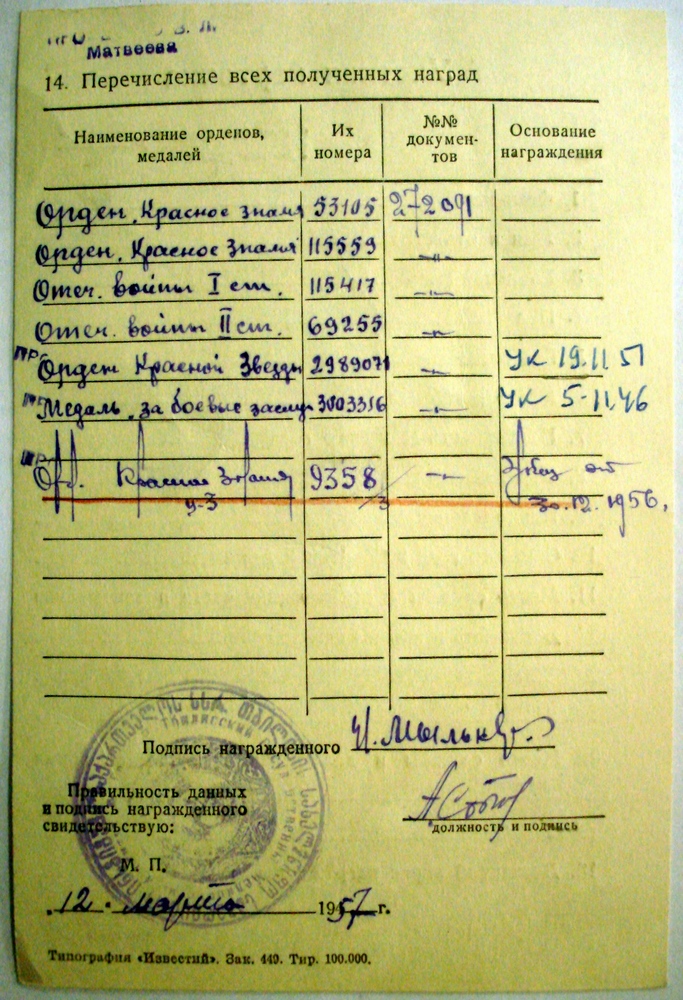 Матвеева
14. Перечисление всех полученных наград
Наименование орденов, медалей
Их номера
№№ документов
Основание награждения
Орден. Красное знамя 53105 272091
Орден. Красное Знамя 115559 -"-
Отеч. войны I ст. 115417 -"-
Отеч. войны II ст. 69255 -"-
Орден Красной Звезды 2989071 -"- УК 19.11 51
Медаль. за боевые заслуг 3003316 -"- УК 5-11.46
Орд. Красное Знамя 9358 -"- Указ от
у-3 /3 30.12.1956.
Подпись награжденного
Правильность данных
и подпись награжденного
свидетельствую:
должность и подпись
М. П.
12. марта 1957 г.
Типография «Известий». Зак. 449. Тир. 100.000.